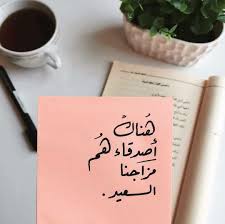 هُناك
أصدقاء هُم
مزاجنا
السعيد.